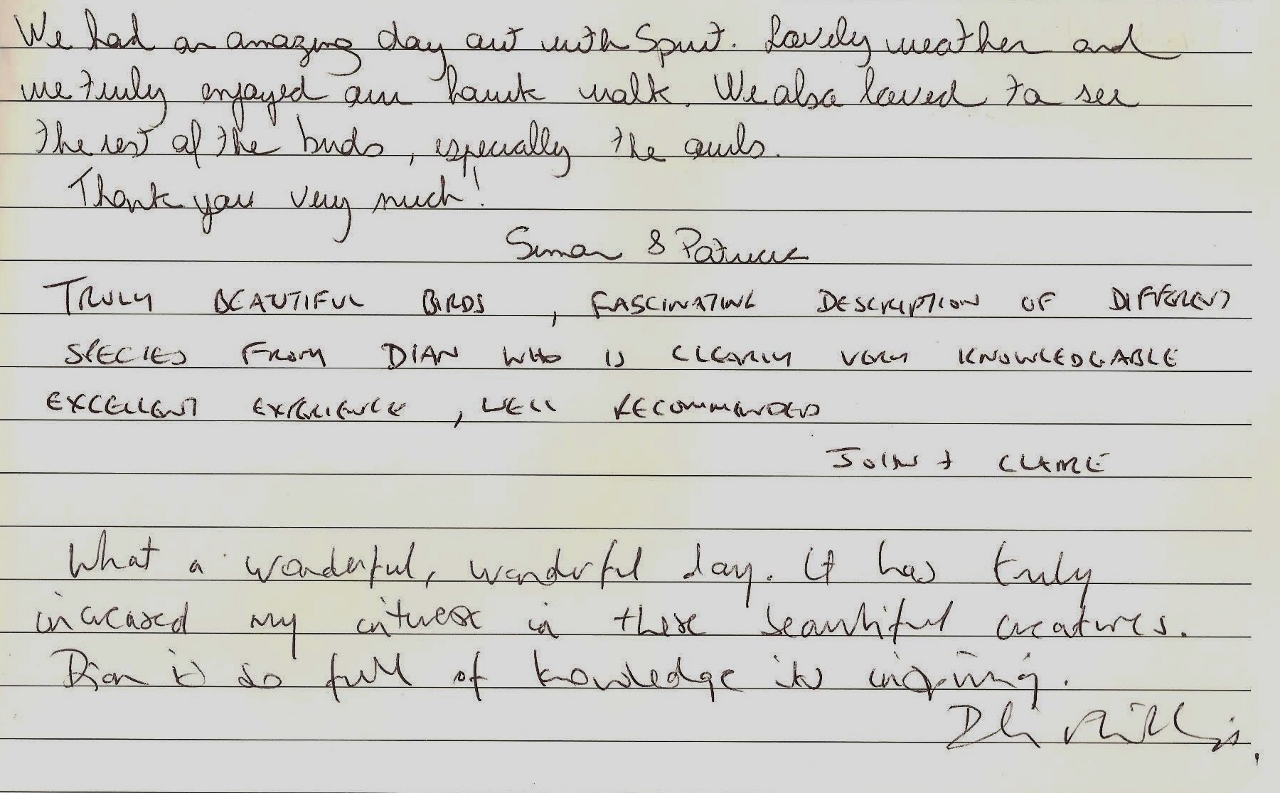 We had an amazing day out with Spirit. Lovely weather and
we truly enjoyed our hawk walk. We also loved to see
the rest of the birds, especially the owls.
Thank you very much!
Simon & Patrick
TRULY BEAUTIFUL BIRDS, FASCINATING DESCRIPTION OF DIFFERENT
SPECIES FROM DIAN WHO IS CLEARLY VERY KNOWLEDGABLE
EXCELLENT EXPERIENCE, WELL RECOMMENDED
JOHN + CLAIRE
What a wonderful, wonderful day. It has truly
increased my interest in these beautiful creatures.
Dian is so full of knowledge its inspiring.